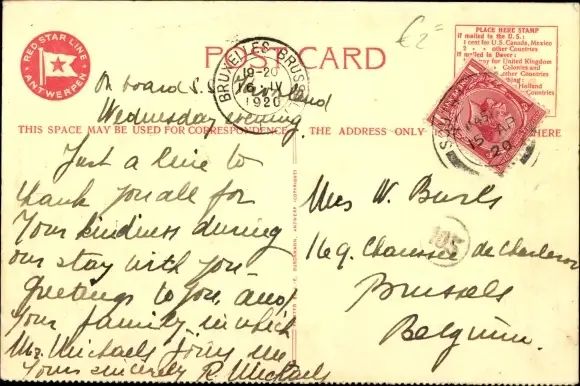 RED STAR LINE
ANTWERPEN
POST CARD
£2=
PLACE HERE STAMP
If mailed to the U.S.:
1 cent for U.S. Canada, Mexico
2 other Countries
If mailed in Dover:
for United Kingdom
Colonies and
other Countries
Holland
Countries
BRUXELLES BRUSSEL
19-20
16 IV
1920
On board S.S.
Wednesday evening.
THIS SPACE MAY BE USED FOR CORRESPONDENCE
THE ADDRESS ONLY
HERE
15 AP
20
Just a line to
thank you all for
Your kindness during
our stay with you -
Greetings to you, and
Your family, in which
Mr. Michaels joins me.
Yours sincerely R. Michaels
Mrs W. Burls
169. Chaussée de Charleroi
Brussels
Belgium.
105